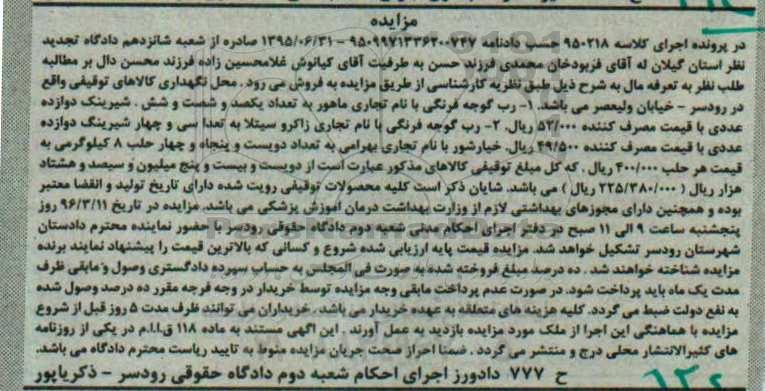 مزایده
در پرونده اجرای کلاسه ۹۵۰۲۱۸ حسب دادنامه ۹۵۰۹۹۷۱۳۳۶۲۰۰۷۴۷ – ۱۳۹۵/۰۶/۳۱ صادره از شعبه شانزدهم دادگاه تجدید
نظر استان گیلان له آقای فزبودخان محمدی فرزند حسن به طرفیت آقای کیانوش غلامحسین زاده فرزند محسن دال بر مطالبه
طلب نظر به تعرفه مال به شرح ذیل طبق نظریه کارشناسی از طریق مزایده به فروش می رود . محل نگهداری کالاهای توقیفی واقع
در رودسر – خیابان ولیعصر می باشد. ۱- رب گوجه فرنگی با نام تجاری ماهور به تعداد یکصد و شصت و شش . شیرینک دوازده
عددی با قیمت مصرف کننده ۵۲/۰۰۰ ریال. ۲- رب گوجه فرنگی با نام تجاری زاکرو سیتلا به تعدا سی و چهار شیرینگ دوازده
عددی با قیمت مصرف کننده ۴۹/۵۰۰ ریال. خیارشور با نام تجاری بهرامی به تعداد دویست و پنجاه و چهار حلب ۸ کیلوگرمی به
قیمت هر حلب ۴۰۰/۰۰۰ ریال . که کل مبلغ توقیفی کالاهای مذکور عبارت است از دویست و بیست و پنج میلیون و سیصد و هشتاد
هزار ریال ( ۲۲۵/۳۸۰/۰۰۰ ریال ) می باشد. شایان ذکر است کلیه محصولات توقیفی رویت شده دارای تاریخ تولید و انقضا معتبر
بوده و همچنین دارای مجوزهای بهداشتی لازم از وزارت بهداشت درمان اموزش پزشکی می باشد. مزایده در تاریخ ۹۶/۳/۱۱ روز
پنجشنبه ساعت ۹ الی ۱۱ صبح در دفتر اجرای احکام مدنی شعبه دوم دادگاه حقوقی رودسر با حضور نماینده محترم دادستان
شهرستان رودسر تشکیل خواهد شد. مزایده قیمت پایه ارزیابی شده شروع و کسانی که بالاترین قیمت را پیشنهاد نمایند برنده
مزایده شناخته خواهند شد . ده درصد مبلغ فروخته شده به صورت فی المجلس به حساب سپرده دادگستری وصول و مابقی ظرف
مدت یک ماه باید پرداخت شود. در صورت عدم پرداخت مابقی وجه مزایده توسط خریدار در وجه فرجه مقرر ده درصد وصول شده
به نفع دولت ضبط می گردد. کلیه هزینه های متعلقه به عهده خریدار می باشد . خریداران می توانند ظرف مدت ۵ روز قبل از شروع
مزایده با هماهنگی این اجرا از ملک مورد مزایده بازدید به عمل آورند . این اگهی مستند به ماده ۱۱۸ ق.ا.ا.م در یکی از روزنامه
های کثیرالانتشار محلی درج و منتشر می گردد . ضمنا احراز صحت جریان مزایده منوط به تایید ریاست محترم دادگاه می باشد.
ح ۷۷۷ دادورز اجرای احکام شعبه دوم دادگاه حقوقی رودسر – ذکریاپور